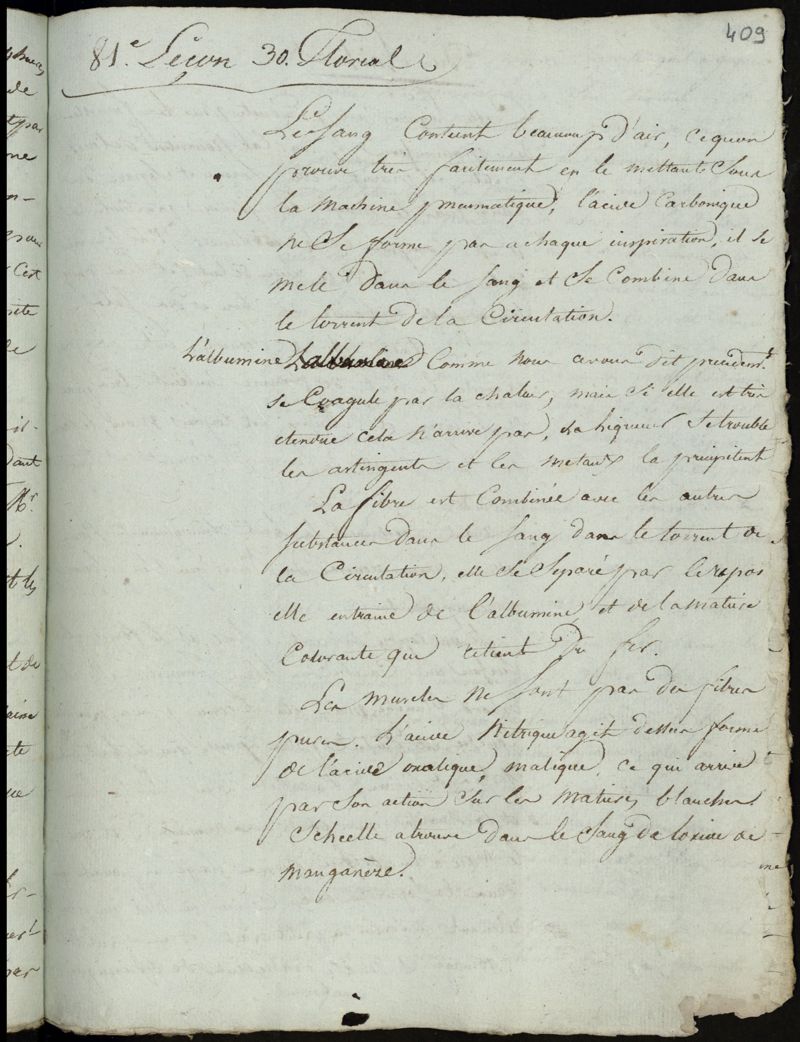 409
81.e Leçon 30. Floréal
Le sang Contient beaucoup d'air, ce quon
prouve tres facilement en le mettant Sous
la Machine pneumatique, l'acide Carbonique
ne Se forme pas a chaque inspiration, il se
mele dans le sang et Se Combine dans
le torrent de la Circulation.
L'albumine Comme nous avons dit precedemt
se Coagule par la chaleur, mais Si elle est tres
etendue cela n'arrive pas, la liqueur Se trouble
les astingents et les metaux la precipitent
La fibre est Combinée avec les autres
substances dans le sang dans le torrent de
la Circulation, elle Se Separe par le repos
elle entraine de l'albumine et de la matiere
Colorante qui retient du fer.
Les muscles ne sont pas des fibres
pures. L'acide Nitrique agit dessus forme
de l'acide oxalique, malique, ce qui arrive
par Son action Sur les Matieres blanches
Scheele a trouvé dans le Sang de loxide de
manganèze.